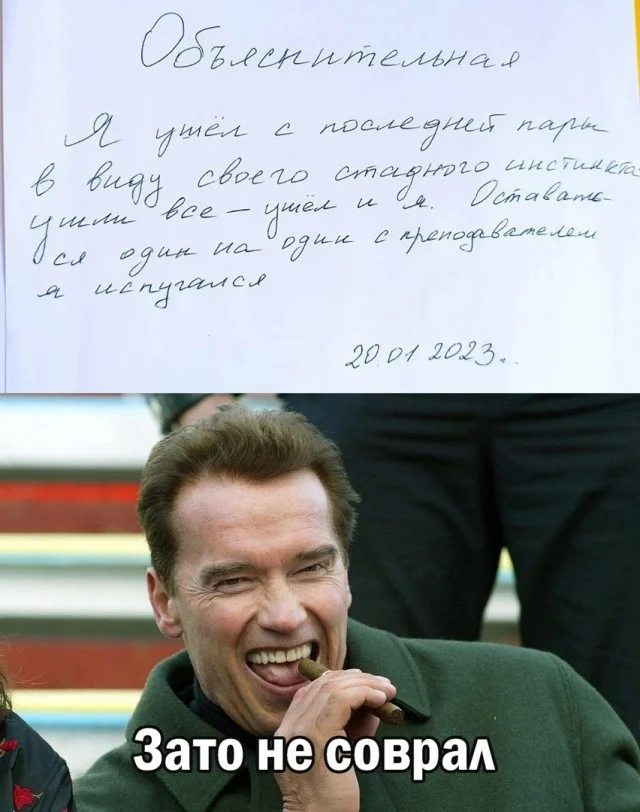 Объяснительная
Я ушёл с последней пары
в виду своего стадного инстинкта
ушли все – ушёл и я. Оставать-
ся один на один с преподавателем
я испугался
20.01 2023.
Зато не соврал